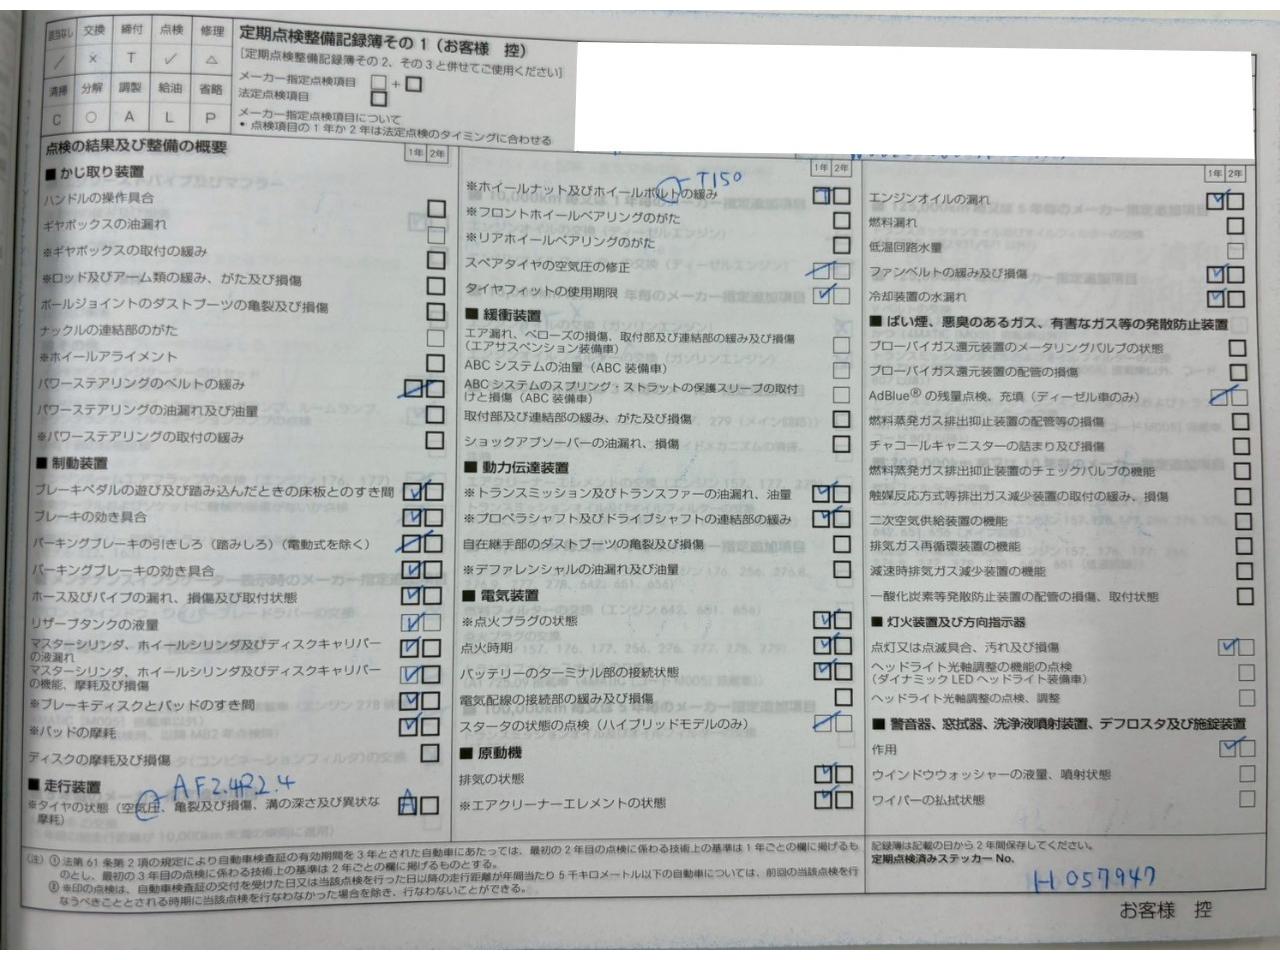 該当なし 交換 締付 点検 修理
／ × T ✓ △
清掃 分解 調製 給油 省略
C ○ A L P
定期点検整備記録簿その 1（お客様 控）
[定期点検整備記録簿その 2、その 3 と併せてご使用ください]
メーカー指定点検項目 □＋□
法定点検項目 □
メーカー指定点検項目について
・点検項目の 1 年か 2 年は法定点検のタイミングに合わせる
点検の結果及び整備の概要
1年 2年
■ かじ取り装置
ハンドルの操作具合
ギヤボックスの油漏れ
※ギヤボックスの取付の緩み
※ロッド及びアーム類の緩み、がた及び損傷
ボールジョイントのダストブーツの亀裂及び損傷
ナックルの連結部のがた
※ホイールアライメント
パワーステアリングのベルトの緩み
パワーステアリングの油漏れ及び油量
※パワーステアリングの取付の緩み
■ 制動装置
ブレーキペダルの遊び及び踏み込んだときの床板とのすき間
ブレーキの効き具合
パーキングブレーキの引きしろ（踏みしろ）（電動式を除く）
パーキングブレーキの効き具合
ホース及びパイプの漏れ、損傷及び取付状態
リザーブタンクの液量
マスターシリンダ、ホイールシリンダ及びディスクキャリパー
の液漏れ
マスターシリンダ、ホイールシリンダ及びディスクキャリパー
の機能、摩耗及び損傷
※ブレーキディスクとパッドのすき間
※パッドの摩耗
ディスクの摩耗及び損傷
■ 走行装置
AF2.4R2.4
※タイヤの状態（空気圧、亀裂及び損傷、溝の深さ及び異状な
摩耗） A
1年 2年
T150
※ホイールナット及びホイールボルトの緩み T
※フロントホイールベアリングのがた
※リアホイールベアリングのがた
スペアタイヤの空気圧の修正
タイヤフィットの使用期限
■ 緩衝装置
エア漏れ、ベローズの損傷、取付部及び連結部の緩み及び損傷
（エアサスペンション装備車）
ABC システムの油量（ABC 装備車）
ABC システムのスプリング・ストラットの保護スリーブの取付
けと損傷（ABC 装備車）
取付部及び連結部の緩み、がた及び損傷
ショックアブソーバーの油漏れ、損傷
■ 動力伝達装置
※トランスミッション及びトランスファーの油漏れ、油量
※プロペラシャフト及びドライブシャフトの連結部の緩み
自在継手部のダストブーツの亀裂及び損傷
※デファレンシャルの油漏れ及び油量
■ 電気装置
※点火プラグの状態
点火時期
バッテリーのターミナル部の接続状態
電気配線の接続部の緩み及び損傷
スタータの状態の点検（ハイブリッドモデルのみ）
■ 原動機
排気の状態
※エアクリーナーエレメントの状態
1年 2年
エンジンオイルの漏れ
燃料漏れ
低温回路水量
ファンベルトの緩み及び損傷
冷却装置の水漏れ
■ ばい煙、悪臭のあるガス、有害なガス等の発散防止装置
ブローバイガス還元装置のメータリングバルブの状態
ブローバイガス還元装置の配管の損傷
AdBlue® の残量点検、充填（ディーゼル車のみ）
燃料蒸発ガス排出抑止装置の配管等の損傷
チャコールキャニスターの詰まり及び損傷
燃料蒸発ガス排出抑止装置のチェックバルブの機能
触媒反応方式等排出ガス減少装置の取付の緩み、損傷
二次空気供給装置の機能
排気ガス再循環装置の機能
減速時排気ガス減少装置の機能
一酸化炭素等発散防止装置の配管の損傷、取付状態
■ 灯火装置及び方向指示器
点灯又は点滅具合、汚れ及び損傷
ヘッドライト光軸調整の機能の点検
（ダイナミック LED ヘッドライト装備車）
ヘッドライト光軸調整の点検、調整
■ 警音器、窓拭器、洗浄液噴射装置、デフロスタ及び施錠装置
作用
ウインドウウォッシャーの液量、噴射状態
ワイパーの払拭状態
（注）① 法第 61 条第 2 項の規定により自動車検査証の有効期間を 3 年とされた自動車にあたっては、最初の 2 年目の点検に係わる技術上の基準は 1 年ごとの欄に掲げるも
のとし、最初の 3 年目の点検に係わる技術上の基準は 2 年ごとの欄に掲げるものとする。
② ※印の点検は、自動車検査証の交付を受けた日又は当該点検を行った日以降の走行距離が年間当たり 5 千キロメートル以下の自動車については、前回の当該点検を行
なうべきこととされる時期に当該点検を行なわなかった場合を除き、行なわないことができる。
記録簿は記載の日から 2 年間保存してください。
定期点検済みステッカー No.
H 057947
お客様 控